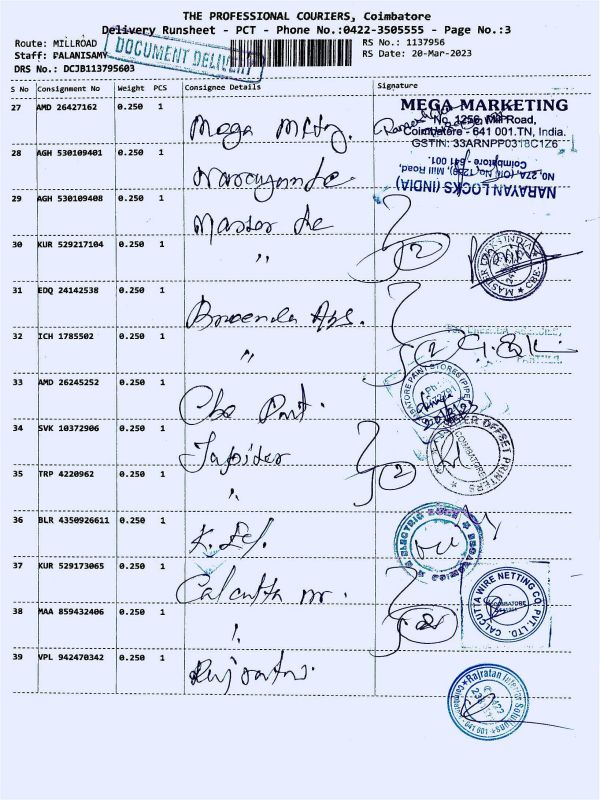 THE PROFESSIONAL COURIERS, Coimbatore
Delivery Runsheet - PCT - Phone No.:0422-3505555 - Page No.:3
Route: MILLROAD
Staff: PALANISAMY
DRS No.: DCJB113795603
DOCUMENT DELIVERY
RS No.: 1137956
RS Date: 20-Mar-2023
S No Consignment No Weight PCS Consignee Details Signature
27 AMD 26427162 0.250 1 Mega Mktg.
MEGA MARKETING
No. 1256, Mill Road,
Coimbatore - 641 001.TN, India.
GSTIN: 33ARNPP0318C1Z6
28 AGH 530109401 0.250 1
NARAYAN LOCKS (INDIA)
NO, 27A, (Old No, 1250) Mill Road,
Coimbatore - 641 001.
29 AGH 530109408 0.250 1 Master
30 KUR 529217104 0.250 1 "
2
31 EDQ 24142538 0.250 1
32 ICH 1785502 0.250 1 "
2
33 AMD 26245252 0.250 1 Cbe Paint.
PAINT STORES
34 SVK 10372906 0.250 1 Jupiter
35 TRP 4220962 0.250 1 "
2
JUPITER OFFSET PRINTERS
COIMBATORE
36 BLR 4350926611 0.250 1
ELECTRIC
37 KUR 529173065 0.250 1 Calcutta
38 MAA 859432406 0.250 1 "
2
CALCUTTA WIRE NETTING CO. PVT. LTD.
COIMBATORE
39 VPL 942470342 0.250 1 Rajratan.
Rajratan Interior Solutions
Coimbatore - 641 001